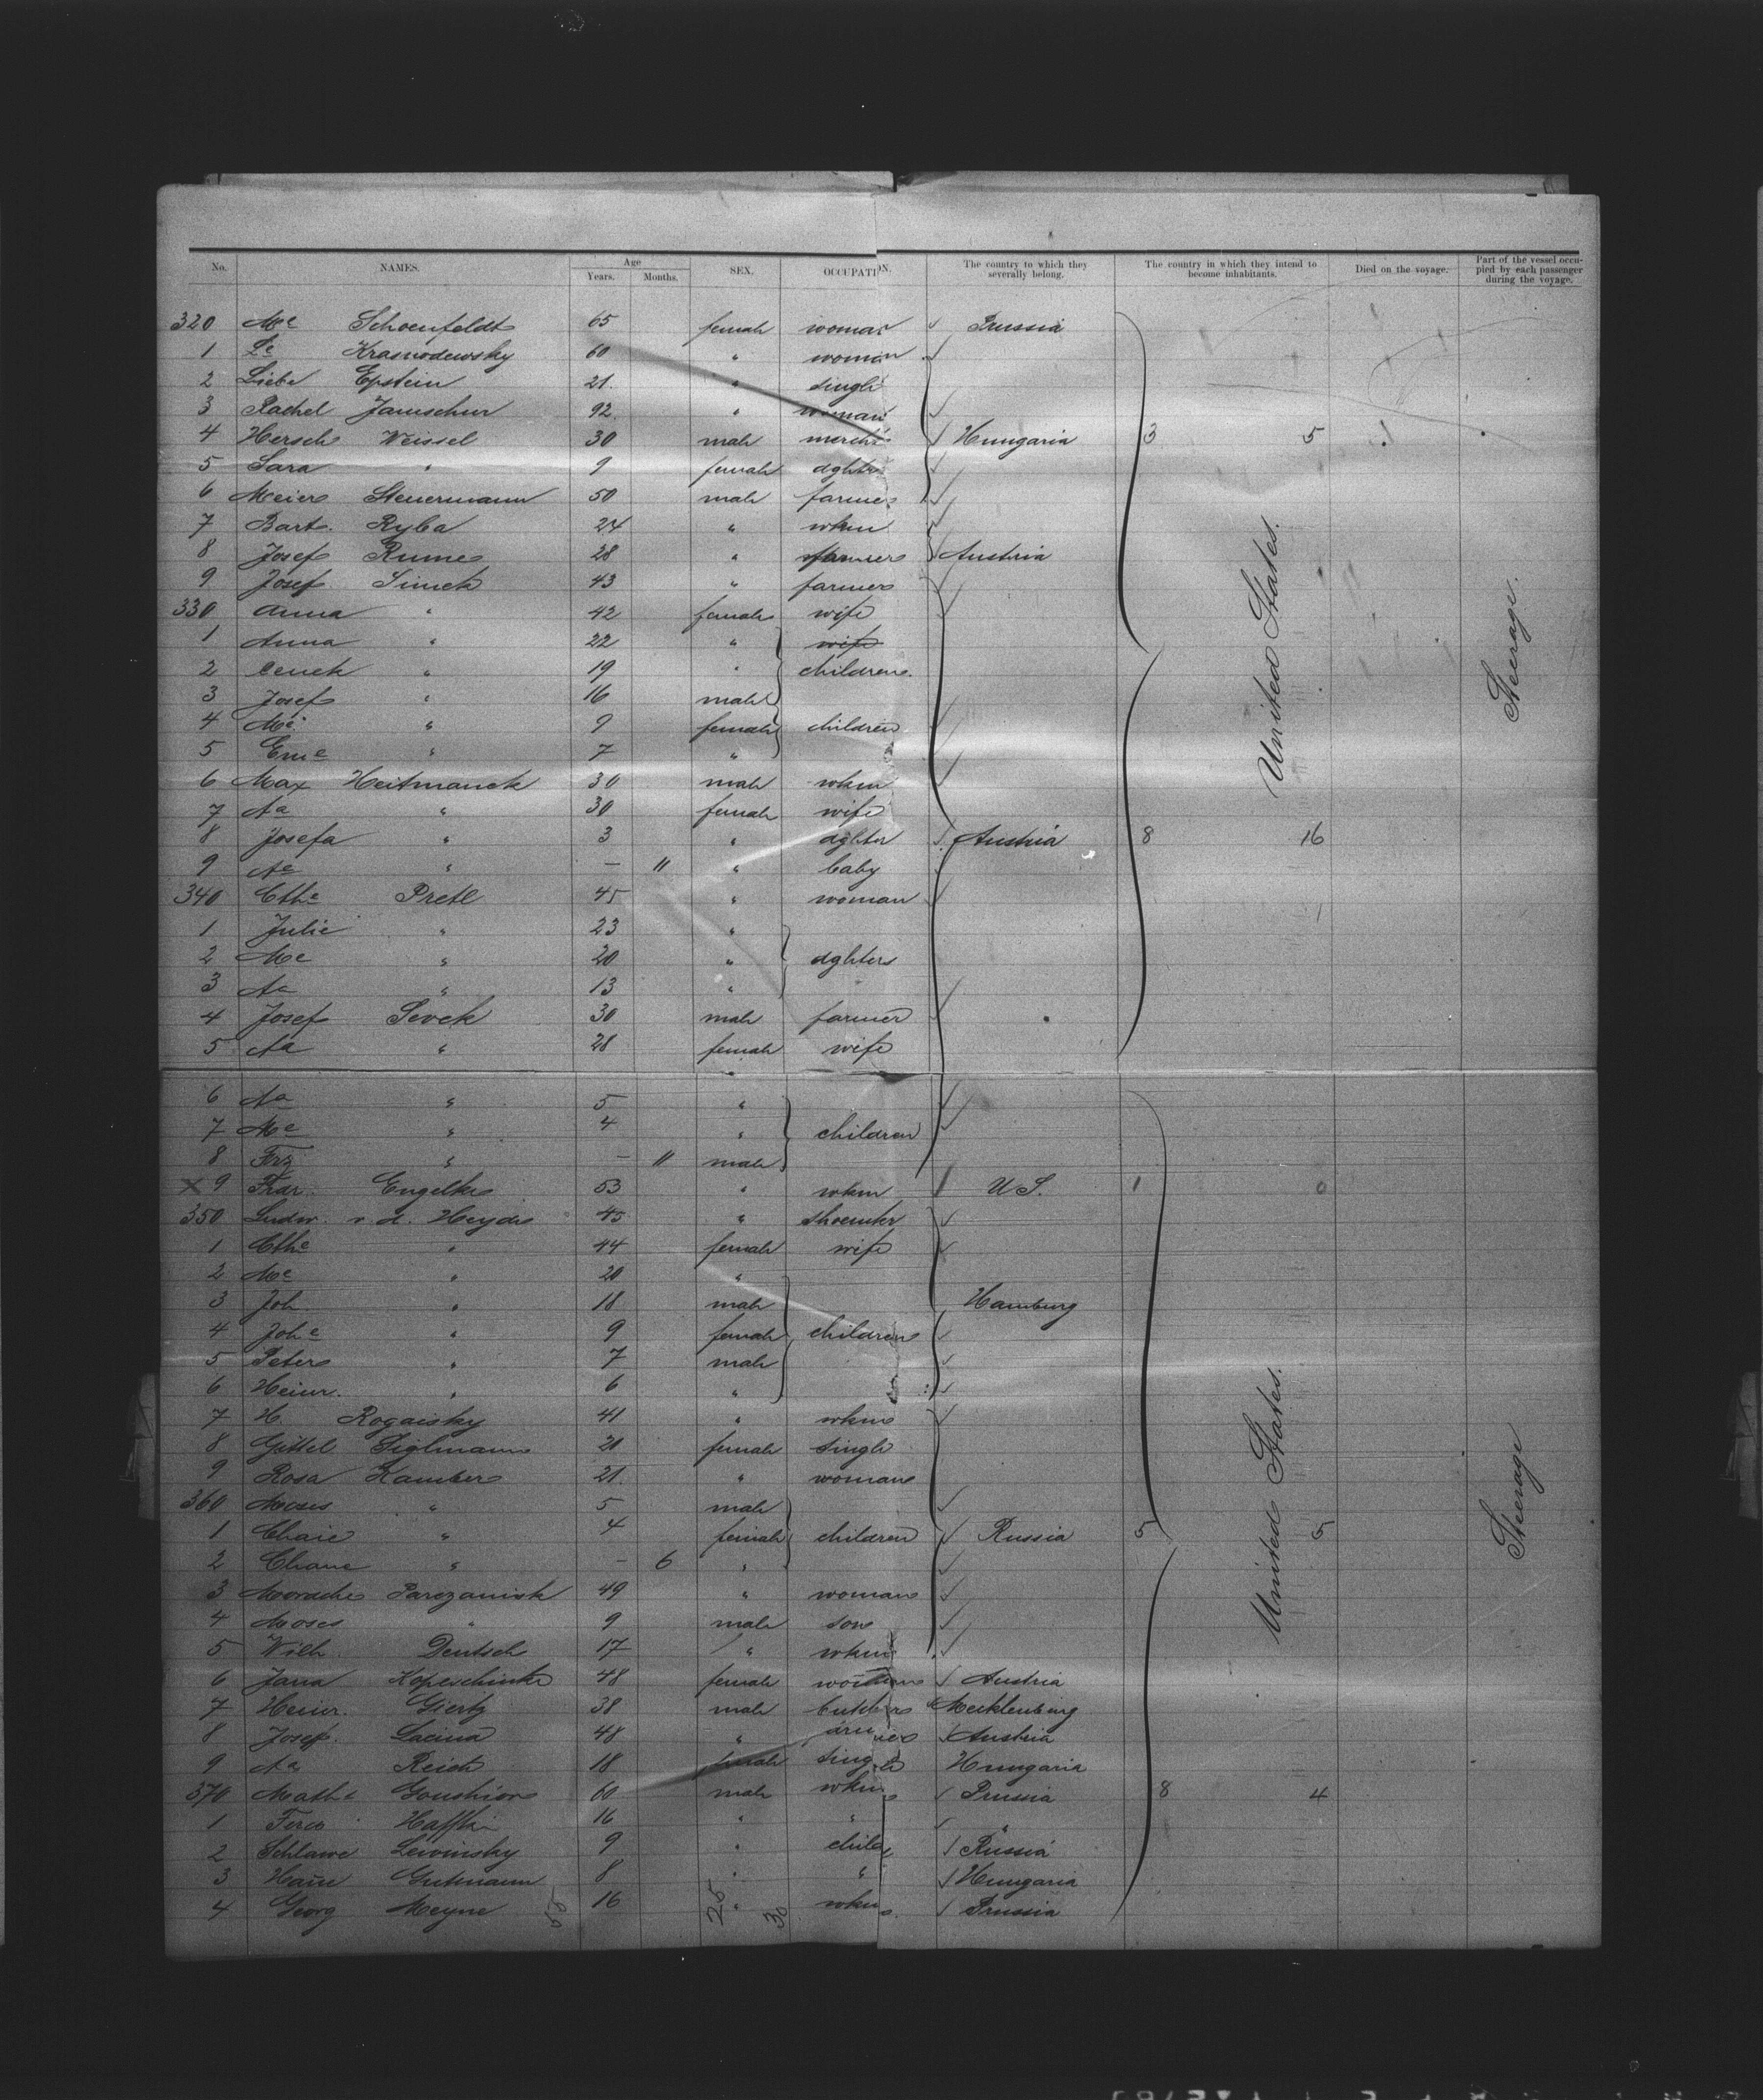 No. NAMES. Age Years. Months. SEX. OCCUPATION. The country to which they severally belong. The country in which they intend to become inhabitants. Died on the voyage. Part of the vessel occupied by each passenger during the voyage.
320 Mc Schoenfeldt 65 female woman Prussia
1 Le Krasnodewsky 60 " woman
2 Liebe Epstein 21. " single
3 Rachel Janischur 92 " woman
4 Hersch Weissel 30 male Hungaria 3 5
5 Sara " 9 female dghter
6 Meier Steuermann 50 male farmer
7 Bart. Ryba 24 " wkm
8 Josef Rume 28 " farmer Austria
9 Josef Simek 43 " farmer
330 Anna " 42 female wife
1 Anna " 22 " wife
2 Cenek " 19 " children
3 Josef " 16 male
4 Mc " 9 female children
5 Eme " 7 "
6 Max Heitmanek 30 male wkm
7 Aa " 30 female wife
8 Josefa " 3 " dghter Austria 8 16
9 Aa " – 11 " baby
340 Cthe Pretl 45 " woman
1 Julie " 23 "
2 Mc " 20 " dghters
3 Aa " 13 "
4 Josef Sevek 30 male farmer
5 Aa " 28 female wife
United States.
Steerage.
6 Aa " 5 "
7 Mc " 4 " children
8 Frz " – 11 male
X 9 Frdr. Engelke 53 " wkm U.S. 1 0
350 Ludw. v. d. Heyde 45 " shoemkr
1 Cthe " 44 female wife
2 Mc " 20 "
3 Joh " 18 male Hamburg
4 Johe " 9 female children
5 Peter " 7 male
6 Heinr. " 6 "
7 H. Rogaisky 41 " wkm
8 Gittel Siglmann 20 female single
9 Rosa Kamber 21. " woman
360 Moses " 5 male
1 Chaie " 4 female children Russia 5 5
2 Chane " – 6 "
3 Parozanisk 49 " woman
4 Moses " 9 male son
5 Wilh. Deutsch 17 " wkm
6 Jana Kopeschinke 48 female Austria
7 Heinr. Giertz 38 male butcher Mecklenburg
8 Josef. Lacina 48 " Austria
9 Aa Reich 18 female single Hungaria
370 Mathe 60 male wkm Prussia 8 4
1 Haffki 16 " " "
2 Schlawe Lewinsky 9 " child Russia
3 Gutmann 8 " " Hungaria
4 Georg Meyne 16 " wkm Prussia
United States.
Steerage
55 25 30